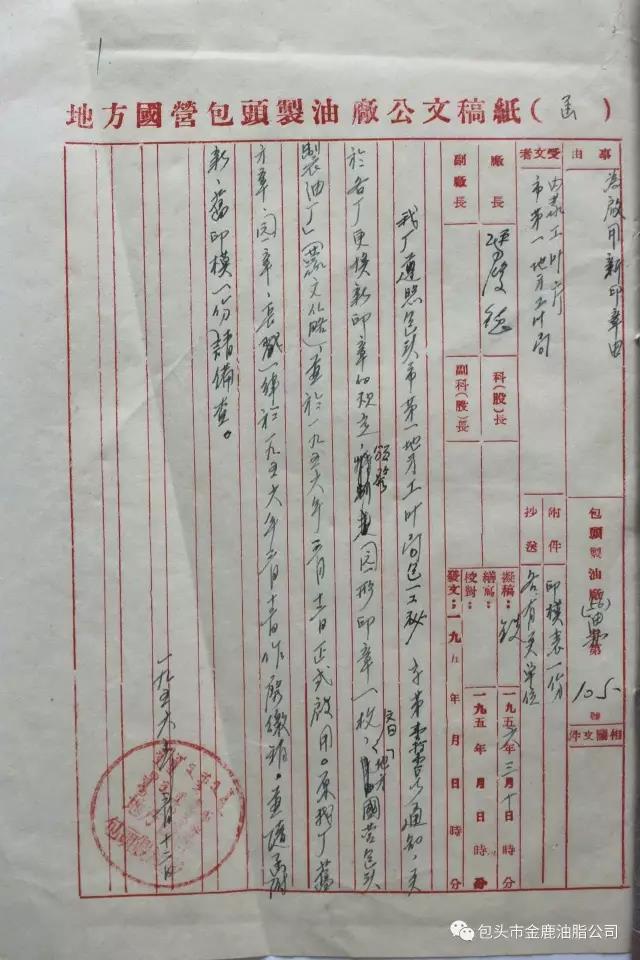 地方國營包頭製油廠公文稿紙（函）
事由
為啟用新印章由
受文者
內蒙工业厅
市第一地方工业局
包頭製油廠(56)油 第105號
相關文件
附件
印模表一份
抄送
各有关单位
廠長
副廠長
科(股)長
副科(股)長
擬稿：
一九五六年三月十日 時 分
繕寫：
校對：
一九五 年 月 日 時 分
發文：一九五 年 月 日 時 分
我厂遵照包头市第一地方工业局包一工秘字第 号 通知，关
於各厂更换新印章的规定，颁發圆形印章一枚，文曰「地方國营包头
製油厂」(蒙文化略)，並於一九五六年三月十二日正式啟用。原我厂舊
方章、圆章、長戳一律於一九五六年三月十二日作廢繳班。並請函附
新、舊印模一份請備查。
一九五六年三月十二日
1
包头市金鹿油脂公司